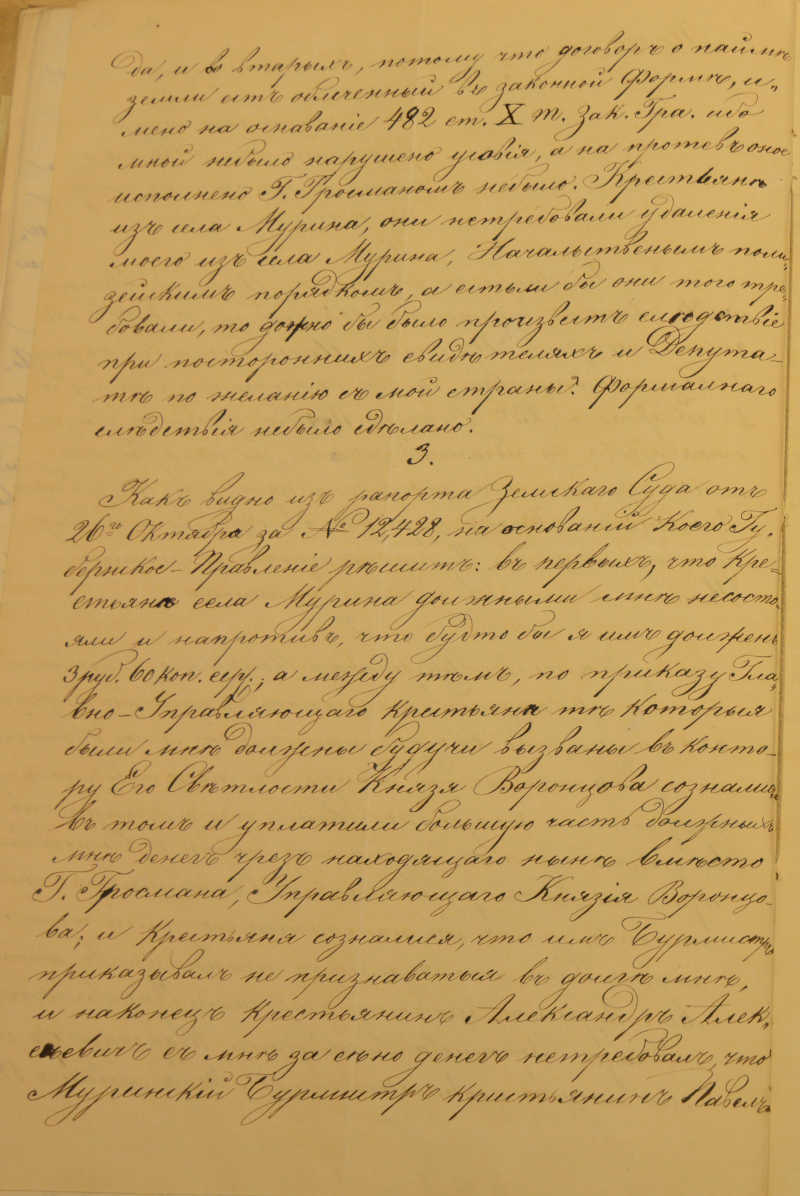 да, и в вторыхъ, потому что договоръ о наймѣ
земли есть облеченный въ законной Формѣ, и-
мено на основаніе 482 ст. X т. Зак. Гра. ибо
мной небыло нарушено условія, а на протевъ оное
исполнено Г. Гросманомъ небыло. Крестьянѣ
изъ села Мурина, они нетребовали удаленія
моего изъ села Мурина, Начальственымъ поли-
зейскимъ порядкомъ, а естьли бы они того тре-
бовали, то должно бы было произвесть слѣдствіе
при постороннихъ свидѣтеляхъ и Депута-
тѣ по желанію съ мой страны? Формалнаго
слѣдствія небыло сдѣлано.
3.
Какъ видно изъ рапорта Земскаго Суда отъ
26го Октября за № 12,428, на основаніи Коего Гу-
бернское Правленіе рѣшитъ: въ первыхъ, что Кре-
стьянѣ села Мурина должными мнѣ несосто-
яли и напротивъ, что будто бы я имъ долженъ
3 руб. 60 коп. сер.; а между тѣмъ, по приказу Гла-
вно-Управляющаго крестьянѣ тѣ которыя
были мнѣ должны будучи вызваны въ конто-
ру Его Свѣтлости Князя Воронцова сознались
въ томъ и уплатили большую часть должныхъ
мнѣ денегъ чрезъ находящаго нынѣ вмѣсто
Г. Гросмана, Управляющаго Князія Воронцо-
ва; и Крестьяня сознался, что имъ Бурмистръ
приказывалъ не признаваться въ долгѣ мнѣ,
и наконецъ крестьянинъ Александръ Алек-
сѣевичъ съ мнѣ за сѣно денегъ нетребовалъ, что
Муринскій Бурмистръ кристьянинъ Павелъ